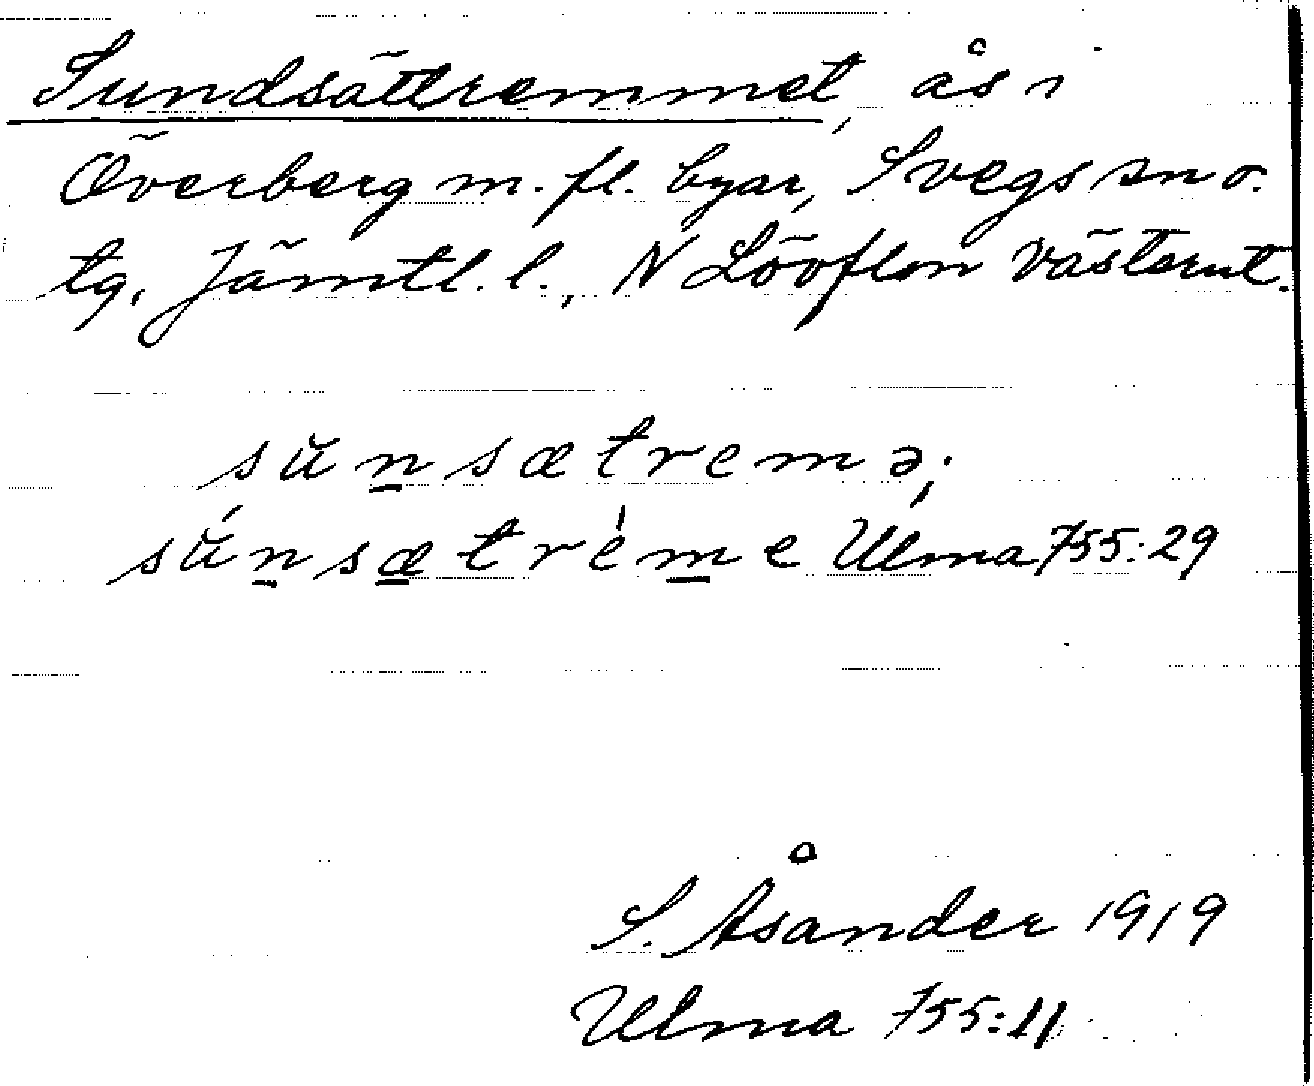 Sundsättremmet, ås i
Överberg m. fl. byar, Svegs sn o.
tg, Jämtl. l., N Lövflon Västerut.
sŭn̲sætremə;
sŭ́n̲sæ̲trèm̲e Ulma 755:29
S. Åsander 1919
Ulma 755:11